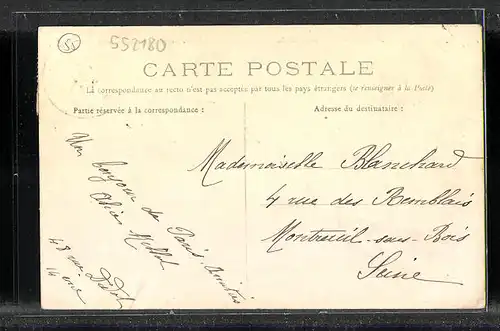 55
552180
CARTE POSTALE
La correspondance au recto n'est pas acceptée par tous les pays étrangers (se renseigner à la Poste)
Partie réservée à la correspondance :
Adresse du destinataire :
Un bonjour de Paris
Alice
Mademoiselle Blanchard
4 rue des Remblais
Montreuil-sous-Bois
Seine
48 rue Didot
14